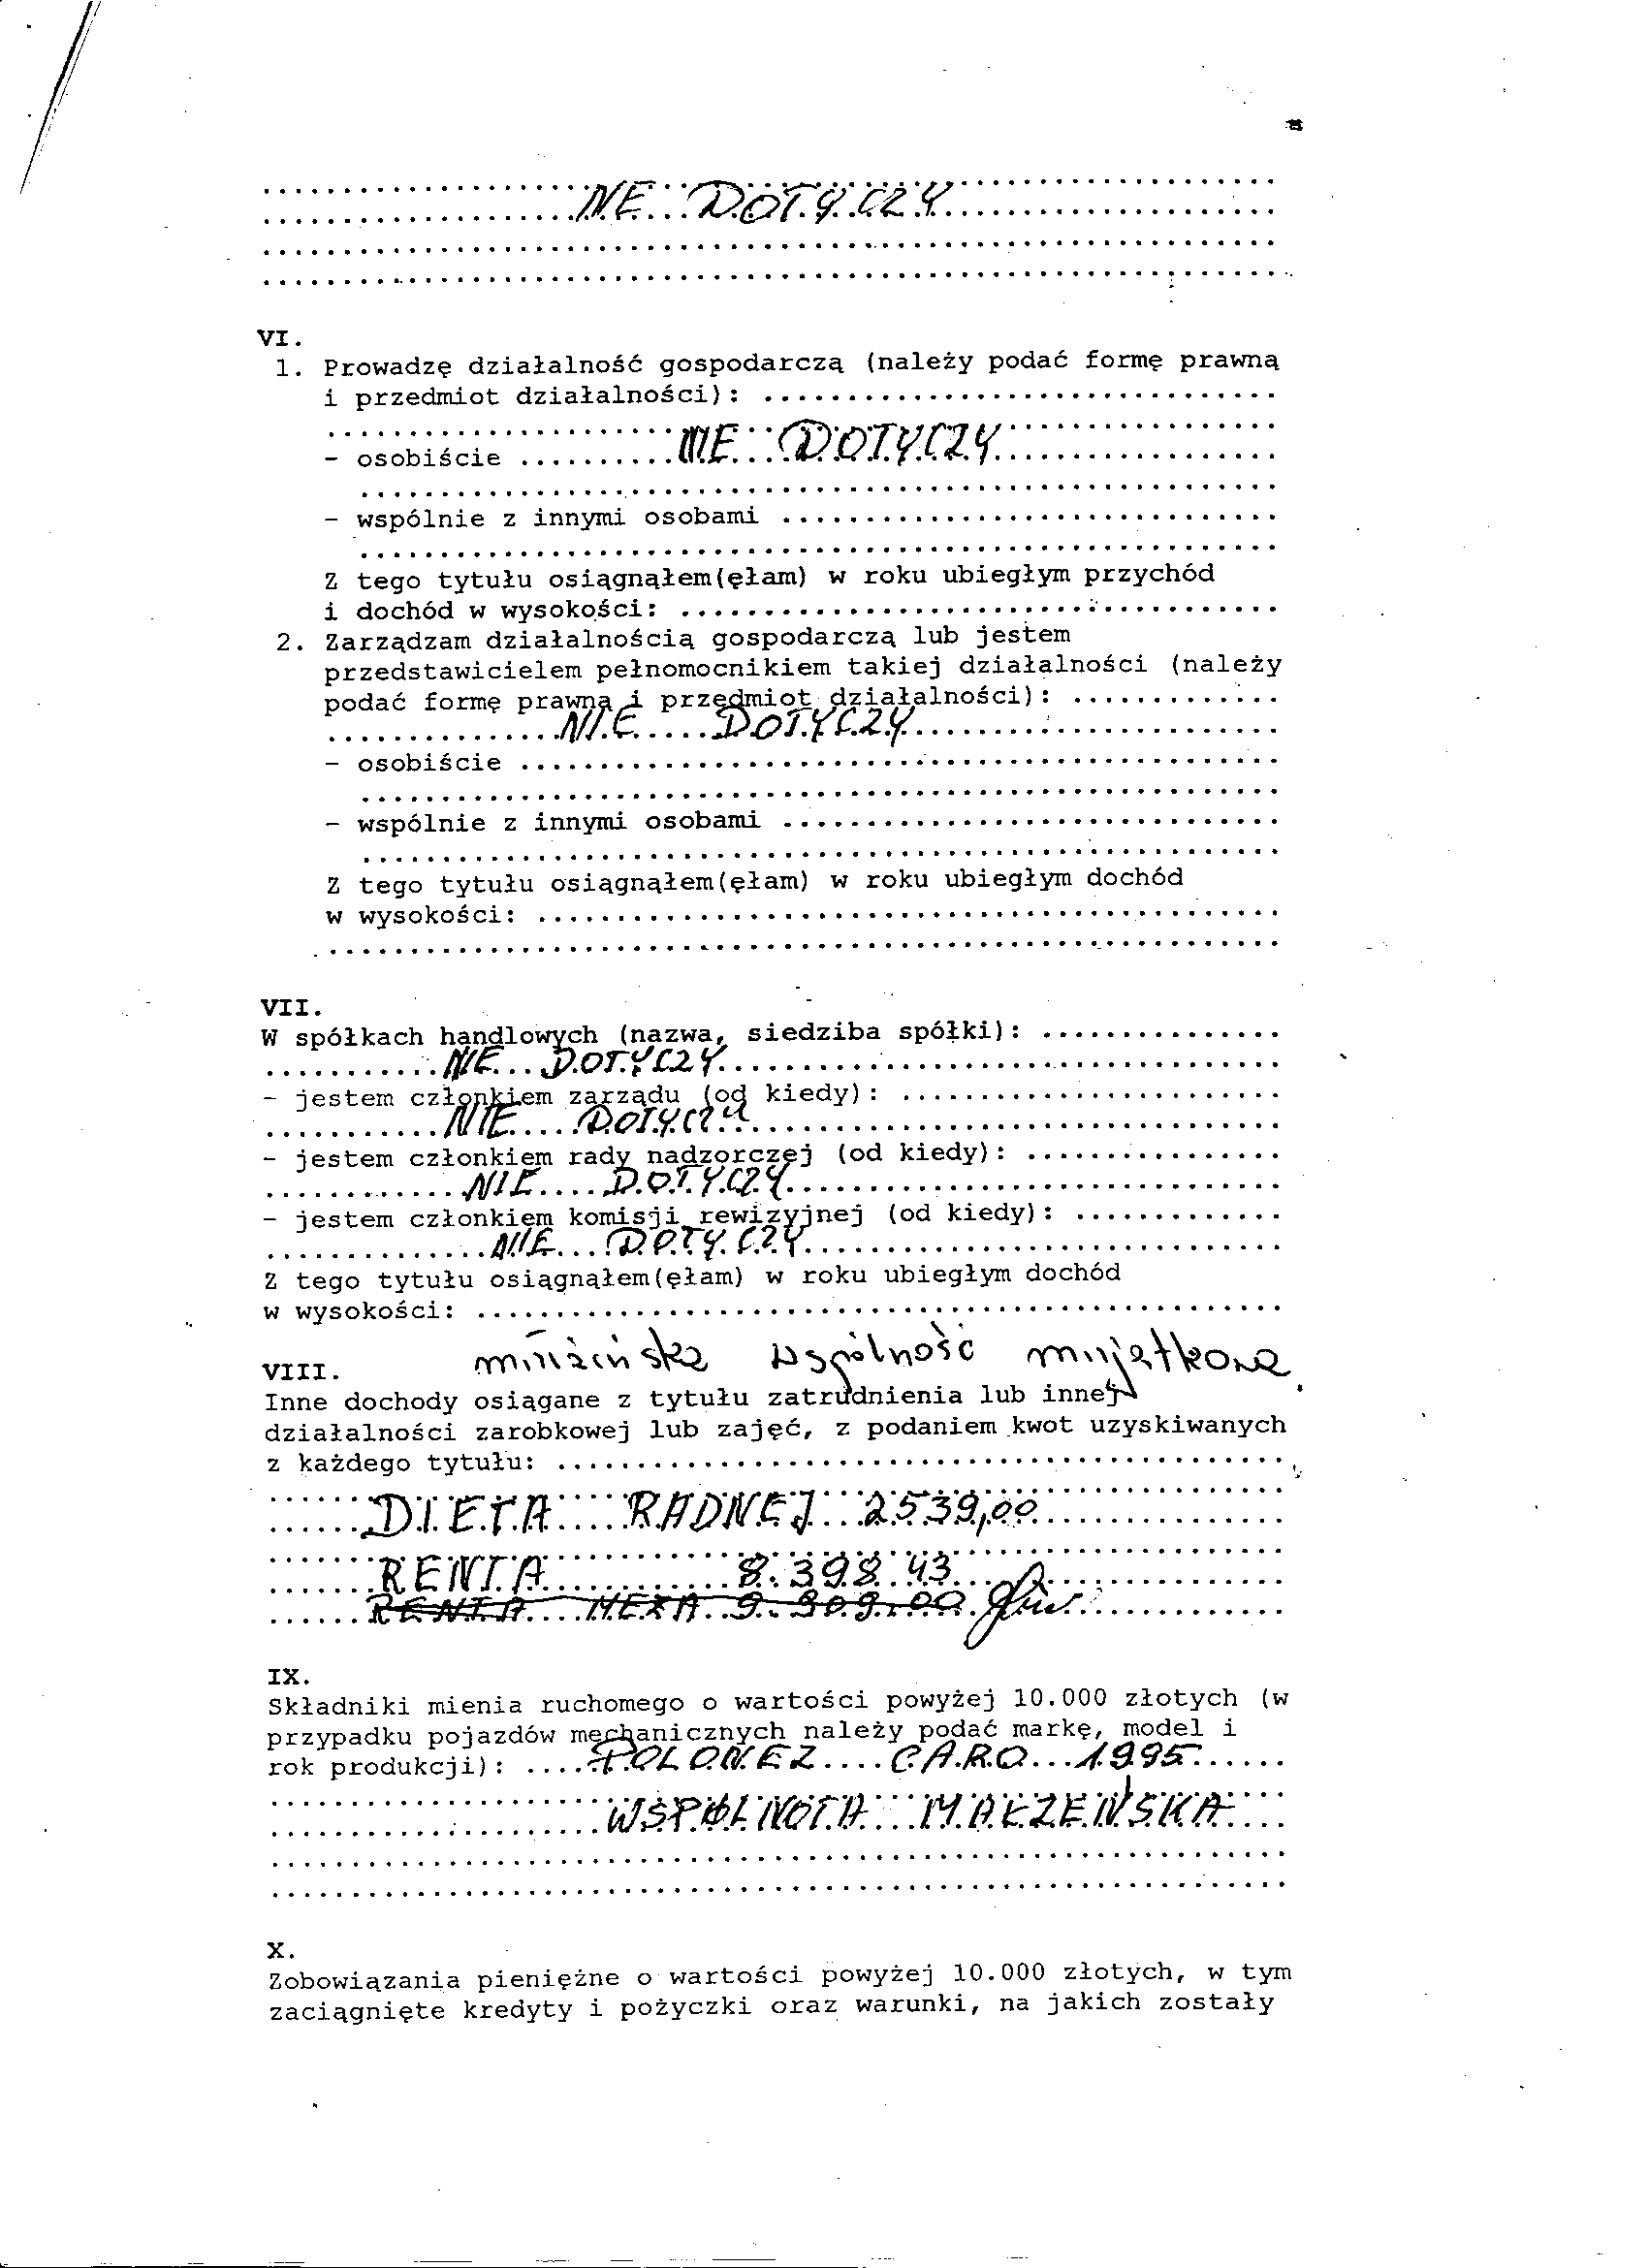 NIE DOTYCZY
VI.
1. Prowadzę działalność gospodarczą (należy podać formę prawną
i przedmiot działalności): ..............................
NIE DOTYCZY
- osobiście ..............................
- wspólnie z innymi osobami ..............................
Z tego tytułu osiągnąłem(ęłam) w roku ubiegłym przychód
i dochód w wysokości: ..............................
2. Zarządzam działalnością gospodarczą lub jestem
przedstawicielem pełnomocnikiem takiej działalności (należy
podać formę prawną i przedmiot działalności): .............
NIE DOTYCZY
- osobiście ..............................
- wspólnie z innymi osobami ..............................
Z tego tytułu osiągnąłem(ęłam) w roku ubiegłym dochód
w wysokości: ..............................
VII.
W spółkach handlowych (nazwa, siedziba spółki): ...............
NIE DOTYCZY
- jestem członkiem zarządu (od kiedy): ..............................
NIE DOTYCZY
- jestem członkiem rady nadzorczej (od kiedy): ................
NIE DOTYCZY
- jestem członkiem komisji rewizyjnej (od kiedy): .............
NIE DOTYCZY
Z tego tytułu osiągnąłem(ęłam) w roku ubiegłym dochód
w wysokości: ..............................
VIII. wspólność
Inne dochody osiągane z tytułu zatrudnienia lub innej
działalności zarobkowej lub zajęć, z podaniem kwot uzyskiwanych
z każdego tytułu: ..............................
DIETA RADNEJ 2539,00
RENTA 8.398.43
RENTA MĘŻA 9.909,00
IX.
Składniki mienia ruchomego o wartości powyżej 10.000 złotych (w
przypadku pojazdów mechanicznych należy podać markę, model i
rok produkcji): POLONEZ CARO 1995
WSPÓLNOTA MAŁŻEŃSKA
X.
Zobowiązania pieniężne o wartości powyżej 10.000 złotych, w tym
zaciągnięte kredyty i pożyczki oraz warunki, na jakich zostały